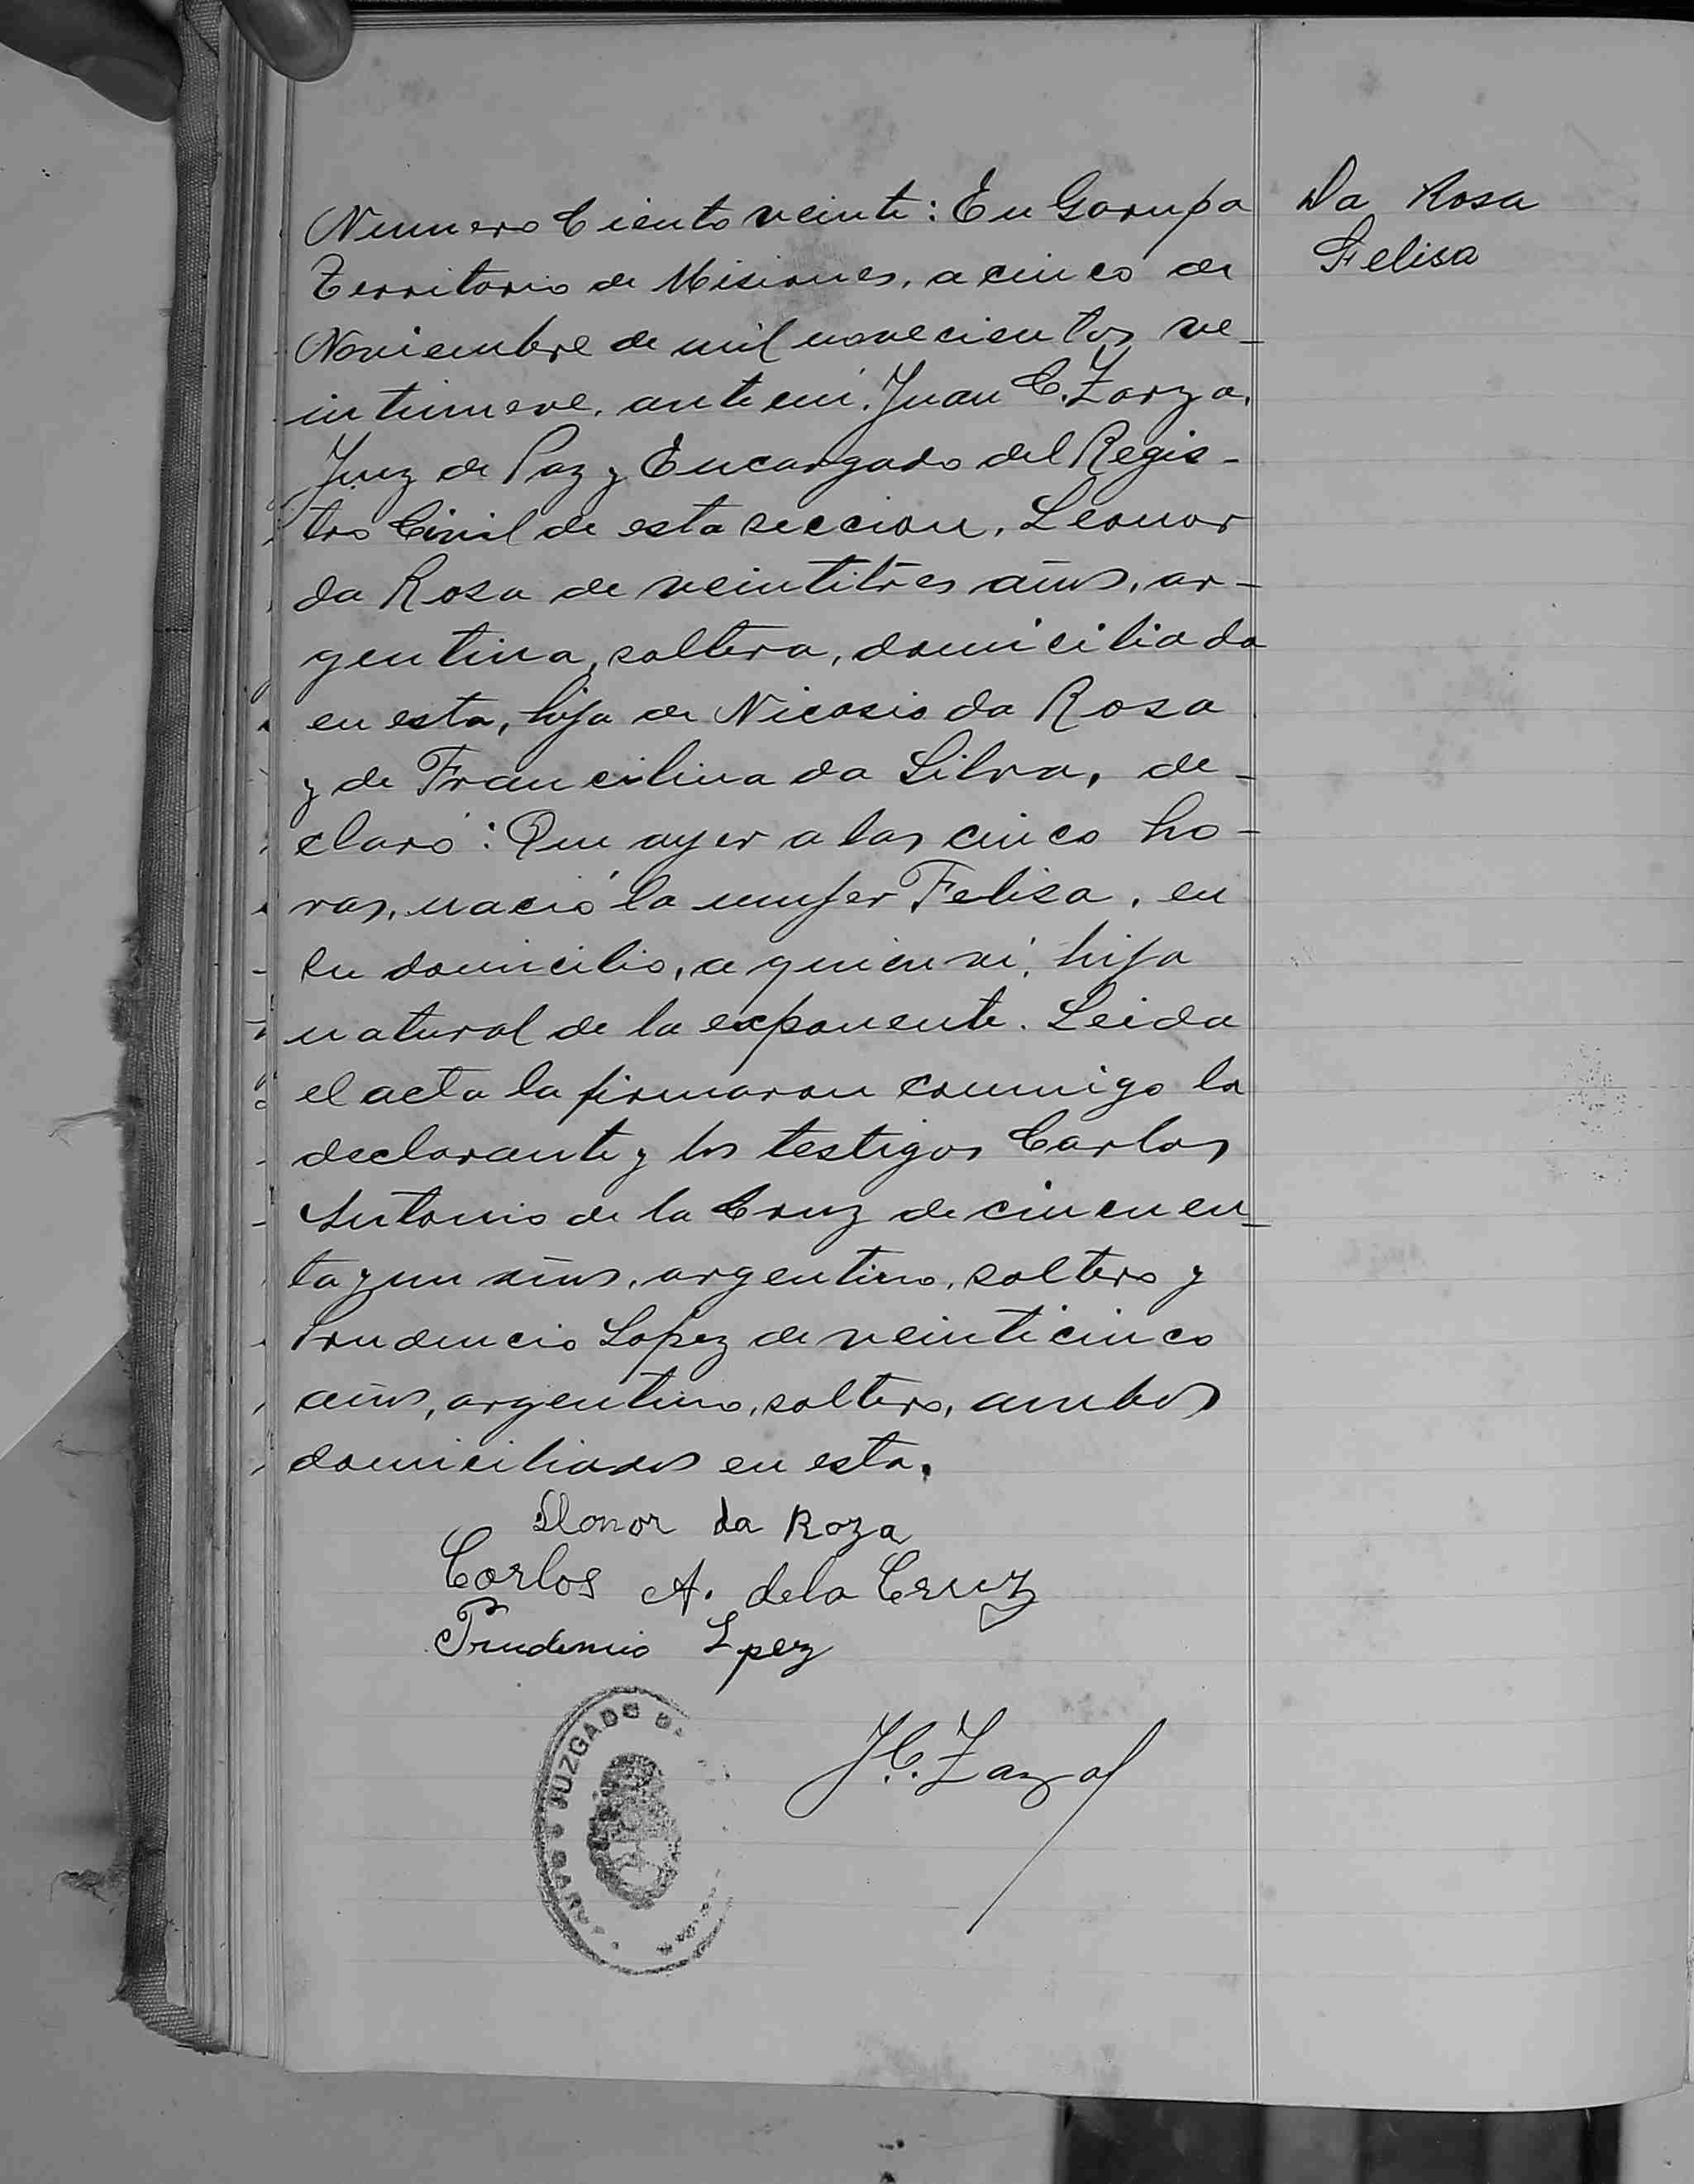 Numero Ciento veinte: En Garupa
Territorio de Misiones, a cinco de
Noviembre de mil novecientos ve-
intinueve, ante mí, Juan C. Zarza,
Juez de Paz y Encargado del Regis-
tro Civil de esta seccion, Leonor
da Rosa de veintitrés años, ar-
gentina, soltera, domiciliada
en esta, hija de Nicasio da Rosa
y de Francilina da Silva, de-
claró: Que ayer a las cinco ho-
ras, nació la mujer Felisa, en
su domicilio, a quien vi, hija
natural de la exponente. Leida
el acta la firmaron conmigo la
declarante y los testigos Carlos
Antonio de la Cruz de cincuen-
ta y un años, argentino, soltero y
Prudencio Lopez de veinticinco
años, argentino, soltero, ambos
domiciliados en esta.
Da Rosa
Felisa
Llonor da Roza
Carlos A. dela Cruz
Prudencio Lpez
J. C. Zarza
JUZGADO